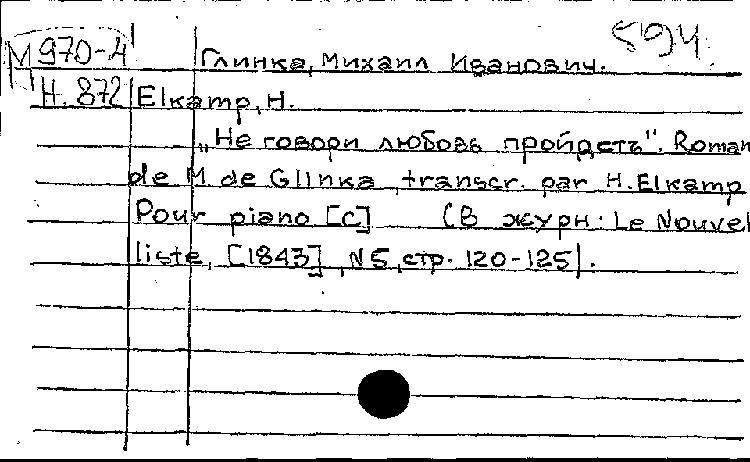 М 970-4 Глинка, Михаил Иванович. 594
Н. 872 Elkamp, H.
„Не говори любовь пройдетъ". Roman
de M de Glinka, transcr. par H. Elkamp
Pour piano [C] (В журн: Le Nouvel
liste, [1843], N5, стр. 120-125).